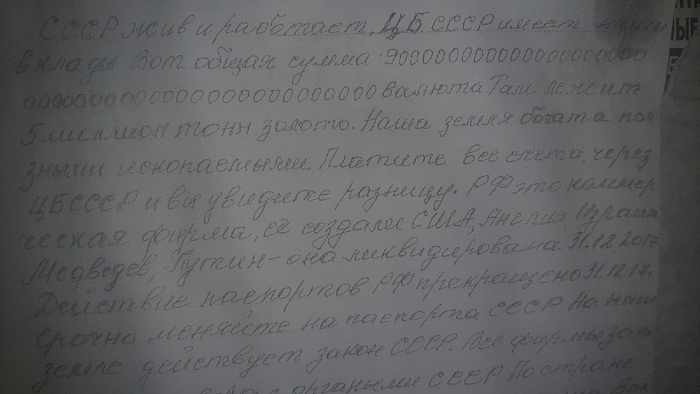 СССР жив и работает. ЦБ СССР имеет наши
вклады Вот общая сумма 9000000000000000000000
00000000000000000000000000 валюта Там лежит
5 миллион тонн золото. Наша земля богата пол
зными ископаемыми. Платите все счета, через
ЦБ СССР и вы увидите разницу. РФ это коммер
ческая фирма, её создали США, Англия, Израиль
Медведев, Путин - она ликвидирована 31.12.2017
Действие паспортов РФ прекращено 31.12.17.
Срочно меняйте на паспорта СССР На наш
земле действует закон СССР. Все фирмы
с органами СССР. По стране